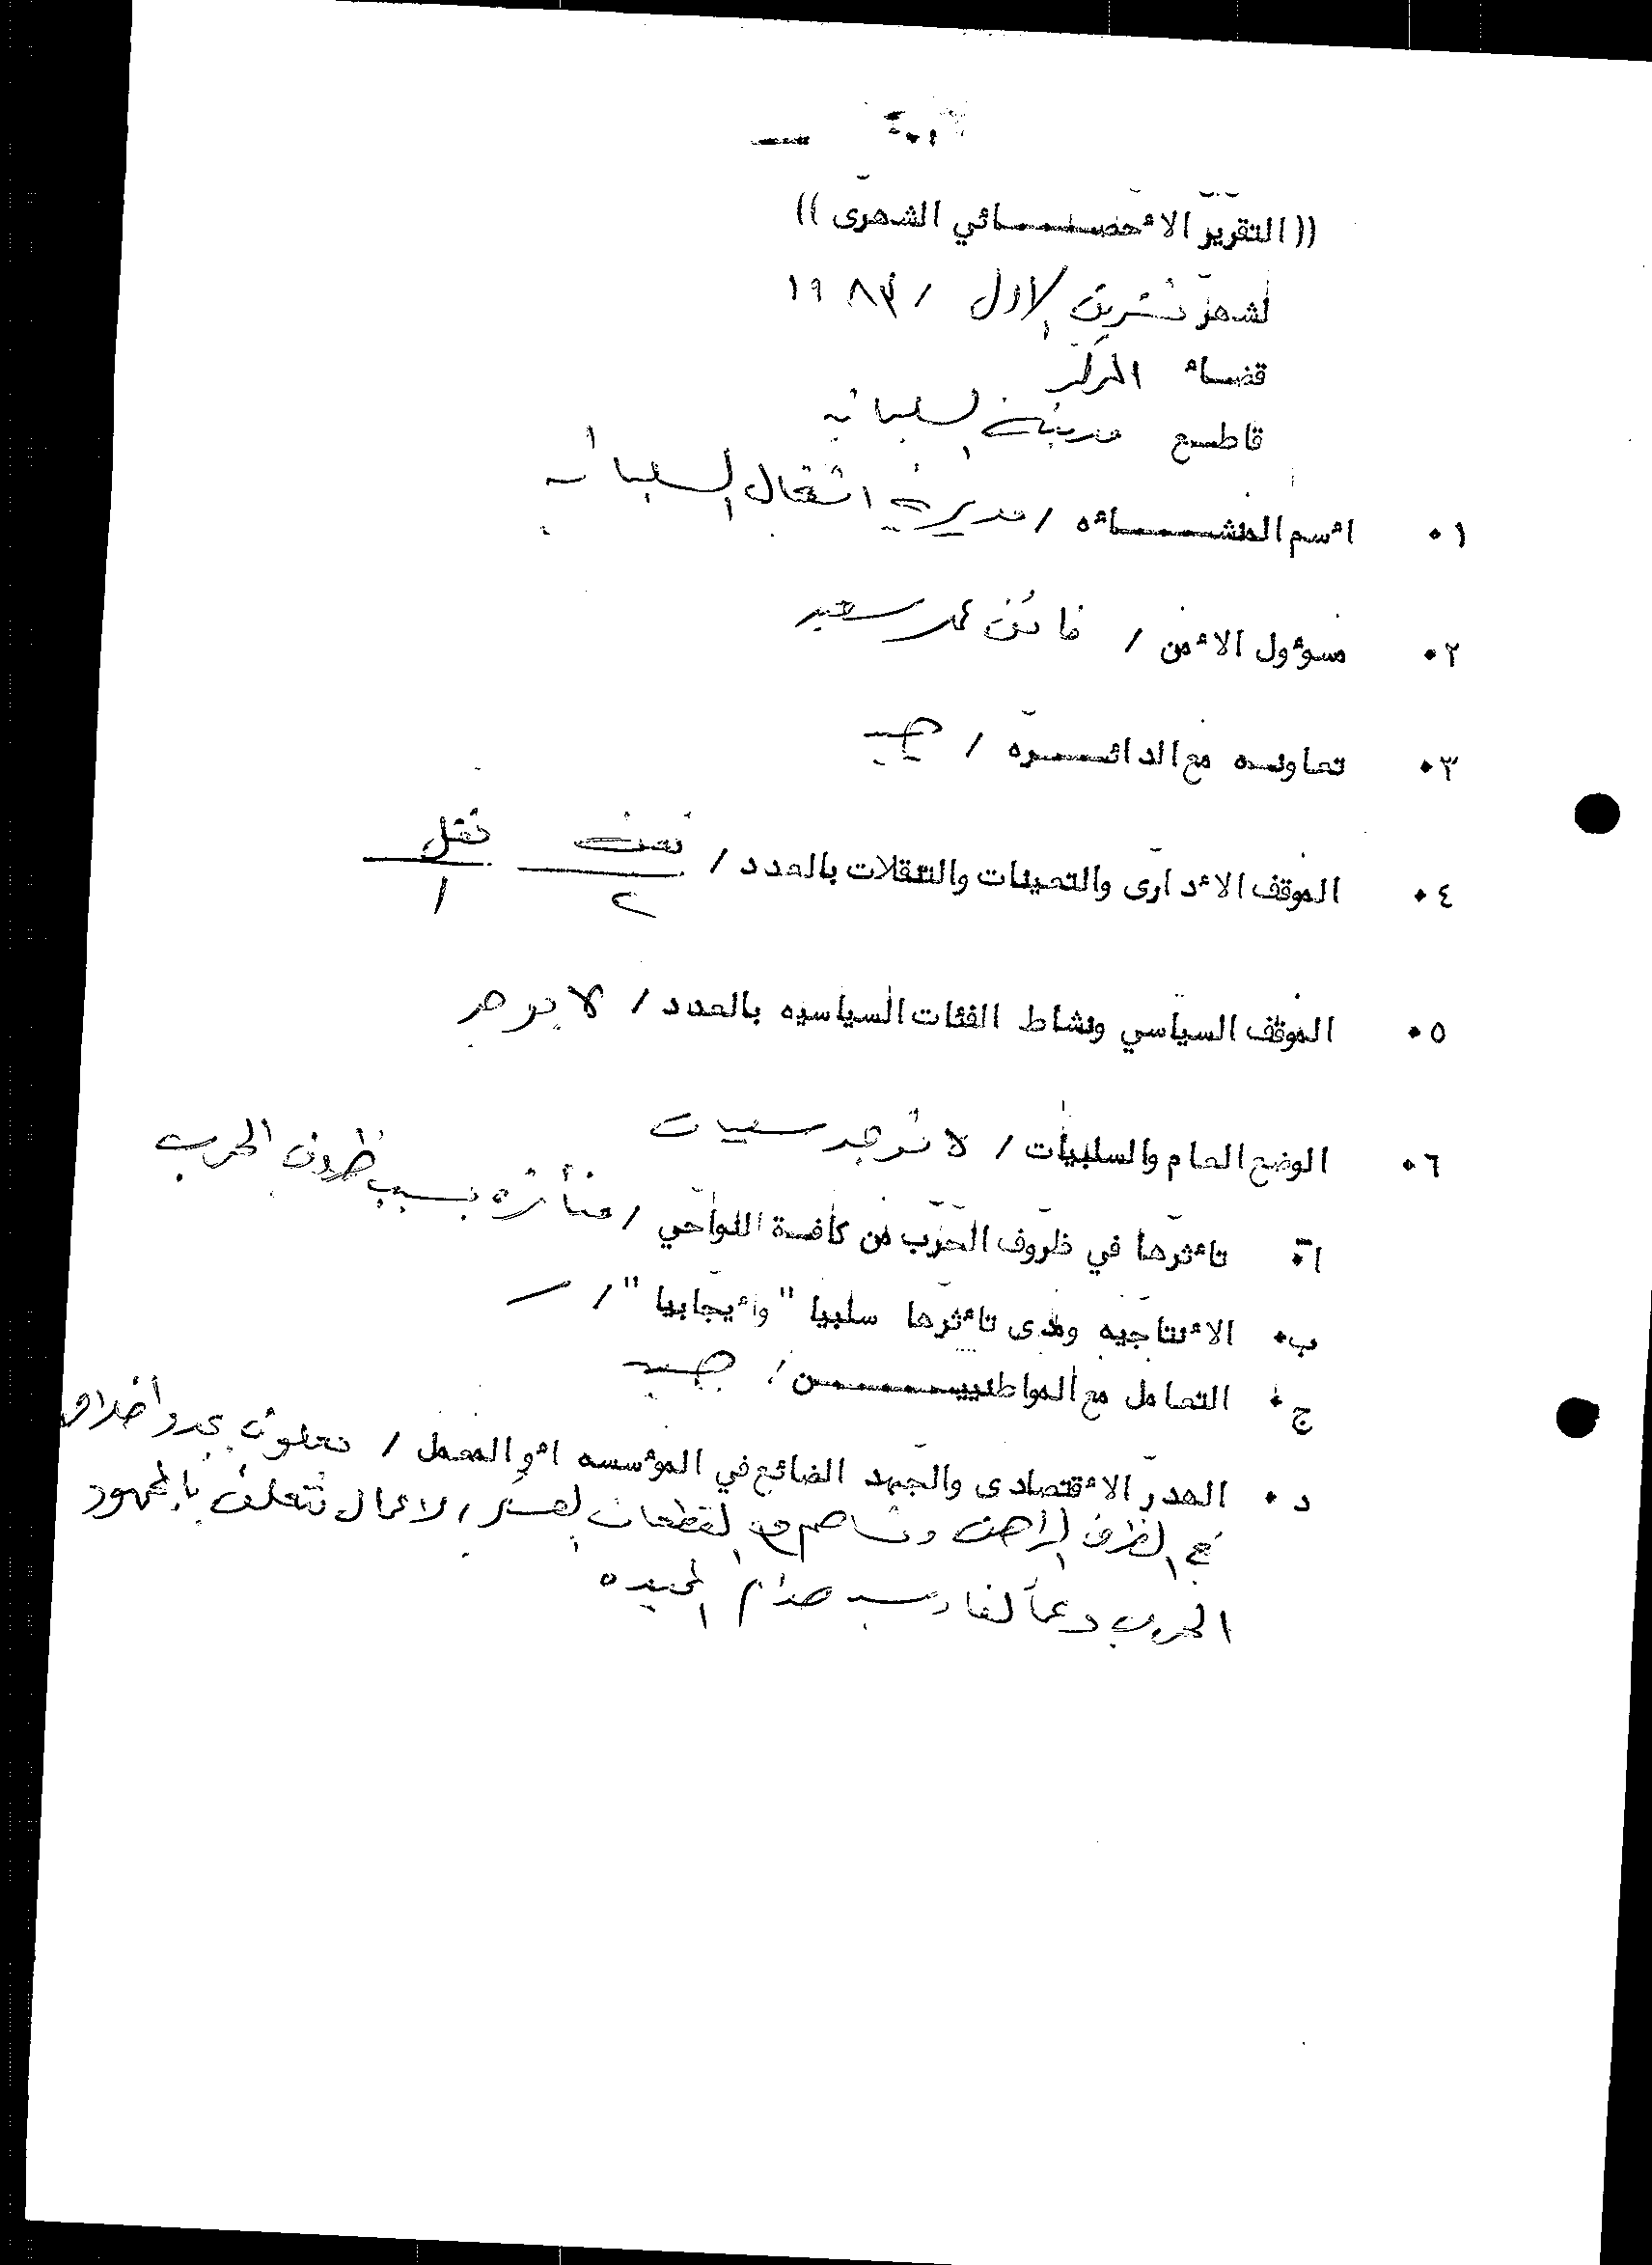 (( التقرير الاٴحصـــــــائي الشهرى ))
لشهر تشرين الاول / ١٩٨٣
قضاء المركز
قاطع مدينة السليمانيه
١٠ اٴسم المنشـــــاٴه / مديرية اشغال السليمانيه
٢٠ مسوٴول الاٴمن / فائق محمد سعيد
٣٠ تعاونه مع الدائــــره / جيد
٤٠ الموقف الاٴدارى والتعينات والتنقلات بالعدد / تعين ٢ نقل ١
٥٠ الموقف السياسي ونشاط الفئات السياسيه بالعدد / لا يوجد
٦٠ الوضع العام والسلبيات / لا توجد سلبيات
ا٠ تاٴثرها في ظروف الحرب من كافة النواحي / متأثره بسبب ظروف الحرب
ب٠ الاٴنتاجيه ومدى تاٴثرها سلبيا " واٴيجابيا " / ــ
ج٠ التعامل مع المواطنيـــــــن / جيد
د٠ الهدر الاٴقتصادى والجهد الضائع في الموٴسسه اٴو المعمل / يعملون بجد وأخلاص
في الظرف الراهن وتساهم مع القطعات الاعمال تتعلق بالمجهود
الحربي دعماً لقادسية صدام المجيده